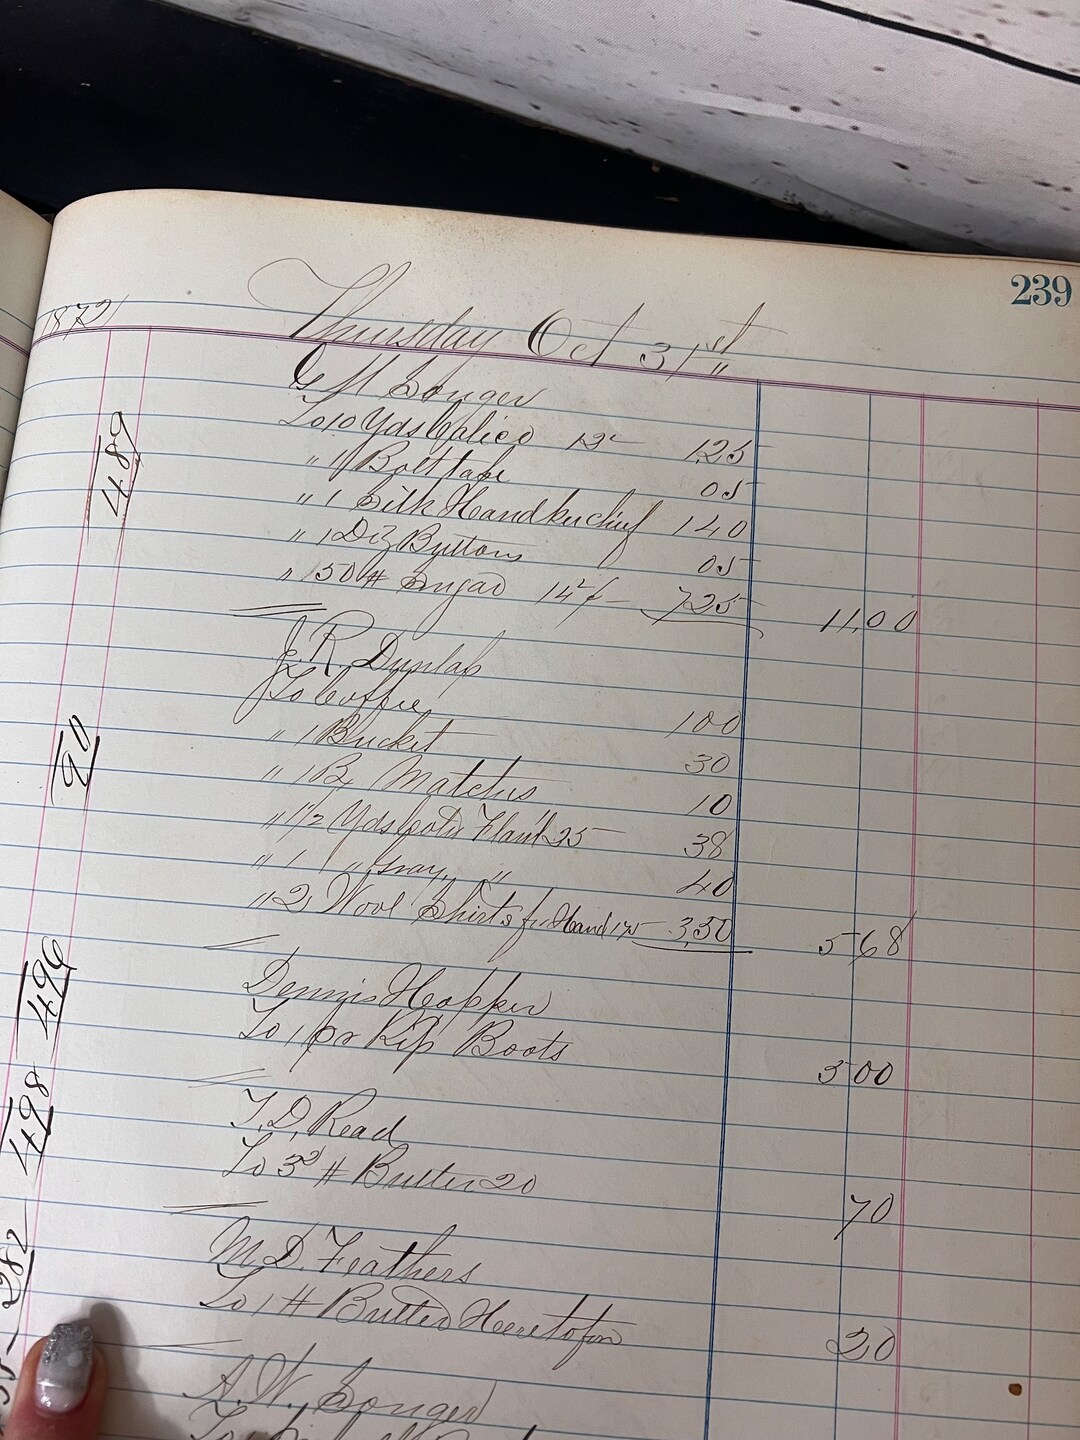 239
1872
Thursday Oct 31st
G M Songer
To 10 Yds Calico 12½ 1.25
" 1 Bolt Tape 05
" 1 Silk Handkerchief 1 40
" 1 Doz Buttons 05
" 50 # Sugar 14½ 7 25 11.00
489
J. R. Dunlap
To Coffee 1 00
" 1 Bucket 30
" 1 Bx Matches 10
90
" 1½ Yds Flan'l 25 38
" 1 " Gray " 40
" 2 Wool Shirts 3.50 5 68
Dennis Hopper
To 1 pr Kip Boots 5 00
496
T. D. Read
To 3½ # Butter 20 70
498
M. D. Feathers
To 1 # Butter Heretofore 20
282
A. W. Songer